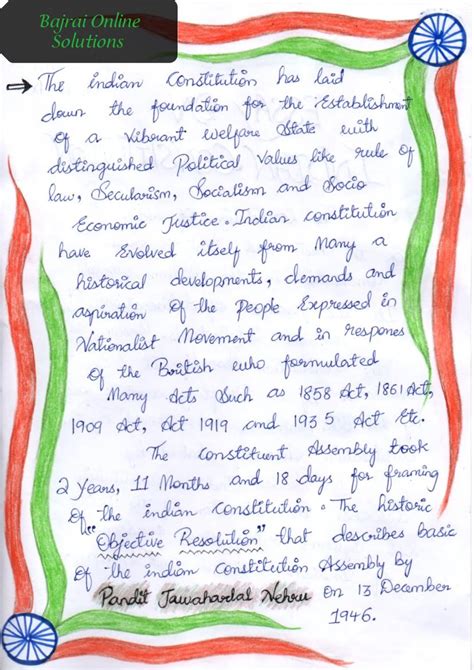 Bajrai Online
Solutions
The indian Constitution has laid
down the foundation for the Establishment
Of a Vibrant welfare State with
distinguished Political Values like rule of
law, Secularism, Socialism and Socio
Economic Justice. Indian constitution
have Evolved itself from Many a
historical developments, demands and
aspiration Of the People Expressed in
Nationalist Movement and in respones
Of the British who formulated
Many Acts Such as 1858 Act, 1861 Act,
1909 Act, Act 1919 and 1935 Act Etc.
The Constituent Assembly took
2 years, 11 Months and 18 days for framing
Of the indian constitution. The historic
"Objective Resolution" that describes basic
Of the indian constitution Assembly by
Pandit Jawaharlal Nehru on 13 December
1946.